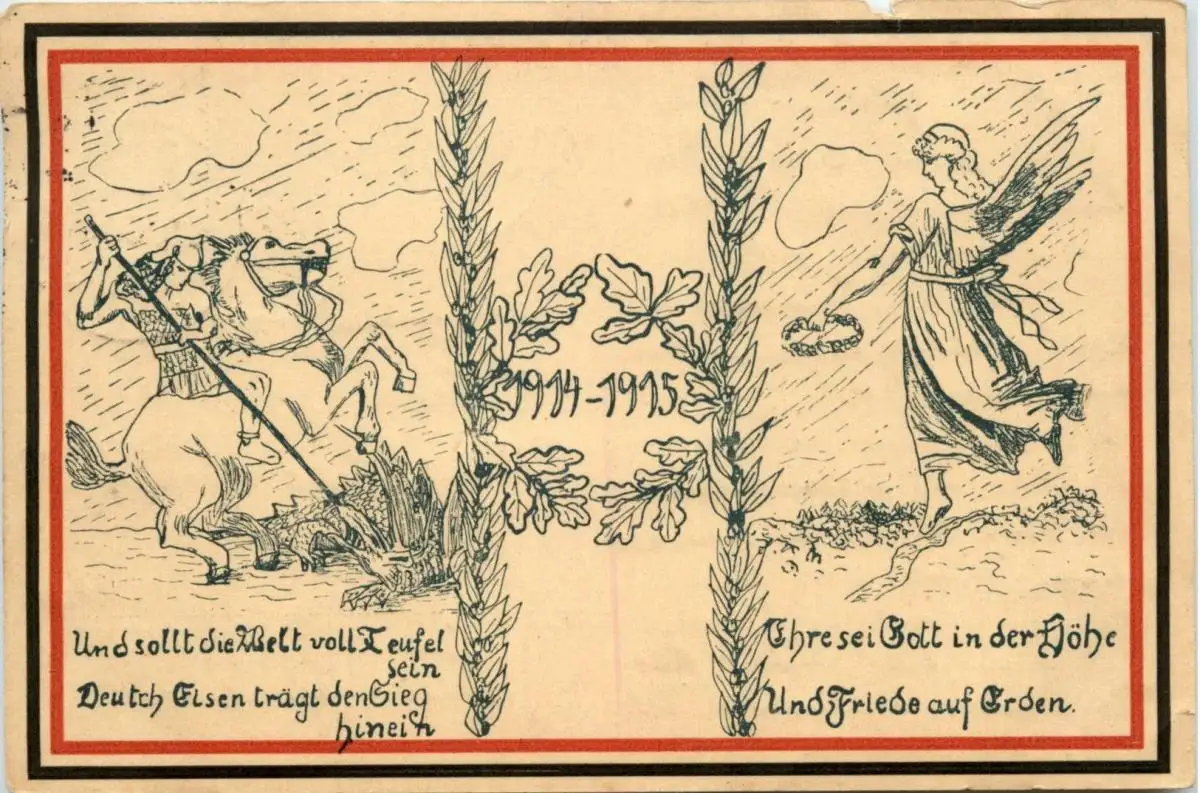 Und sollt die Welt voll Teufel
sein
Deutch Eisen trägt den Sieg
hinein
1914-1915
Ehre sei Gott in der Höhe
Und Friede auf Erden.